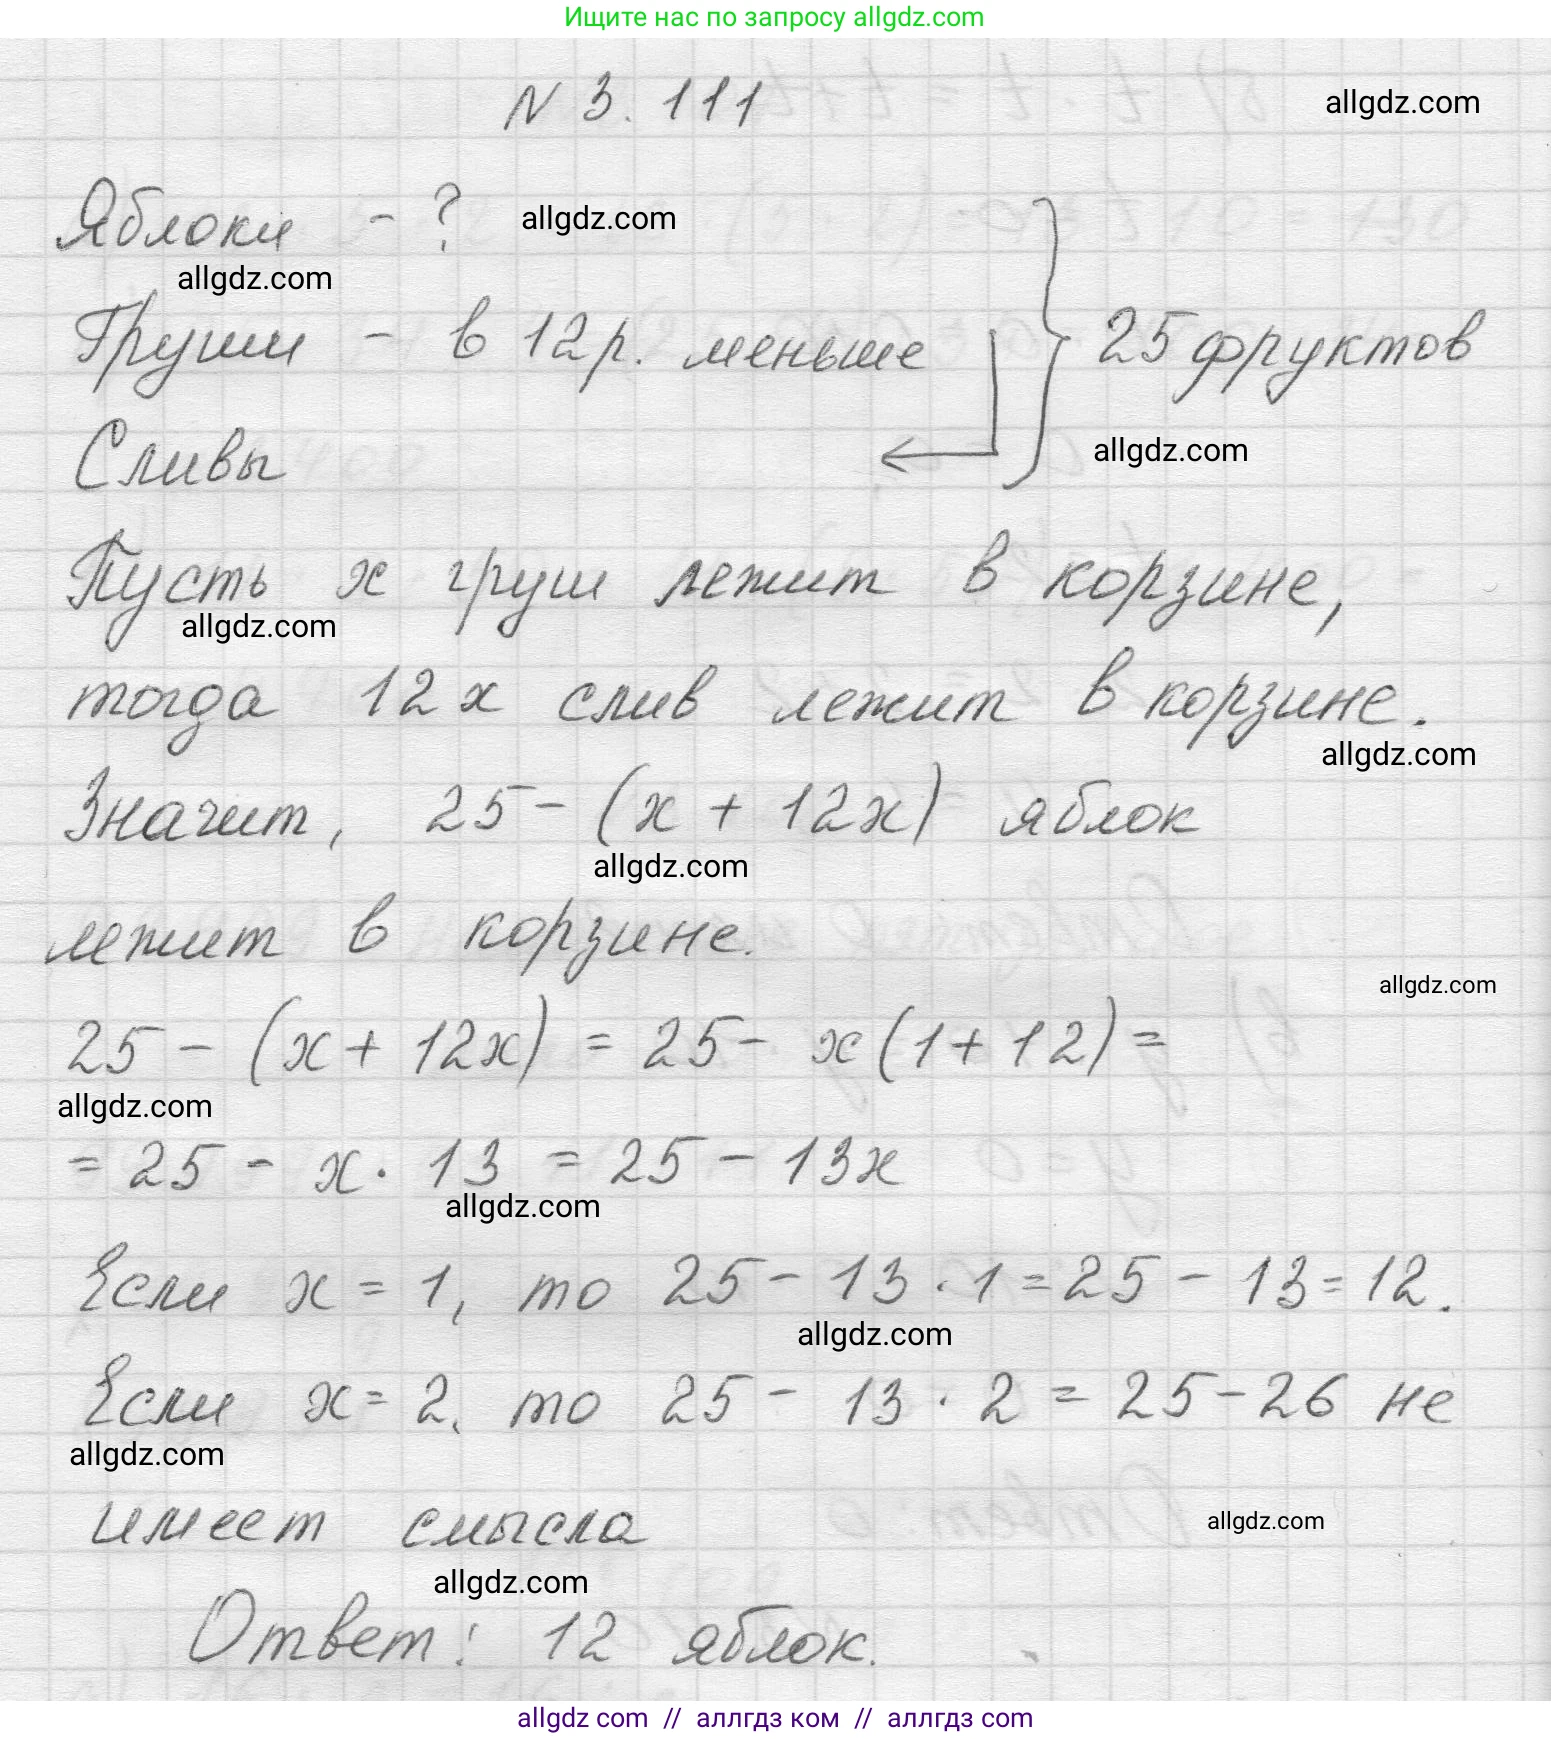 Ищите нас по запросу allgdz.com
N 3.111
allgdz.com
Яблоки - ?
allgdz.com
allgdz.com
Груши - в 12 р. меньше
25 фруктов
Сливы
allgdz.com
Пусть x груш лежит в корзине,
allgdz.com
тогда 12x слив лежит в корзине.
allgdz.com
Значит, 25 - (x + 12x) яблок
allgdz.com
лежит в корзине.
allgdz.com
25 - (x + 12x) = 25 - x(1 + 12) =
allgdz.com
= 25 - x · 13 = 25 - 13x
allgdz.com
Если x = 1, то 25 - 13 · 1 = 25 - 13 = 12.
allgdz.com
Если x = 2, то 25 - 13 · 2 = 25 - 26 не
allgdz.com
имеет смысла
allgdz.com
allgdz.com
Ответ: 12 яблок.
allgdz com // аллгдз ком // аллгдз com